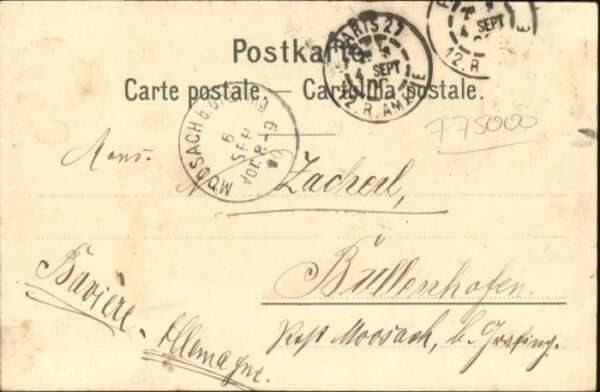 Postkarte.
Carte postale. — Cartolina postale.
PARIS 27
SEPT
12. R. AMPÈRE
SEPT
12. R
MOOSACH b. GRAFING
9
SEP
VOR. 8-9
775000
Mons. Zacherl,
Bullenhofen.
Post Moosach, b. Grafing.
Bavière.
Allemagne.